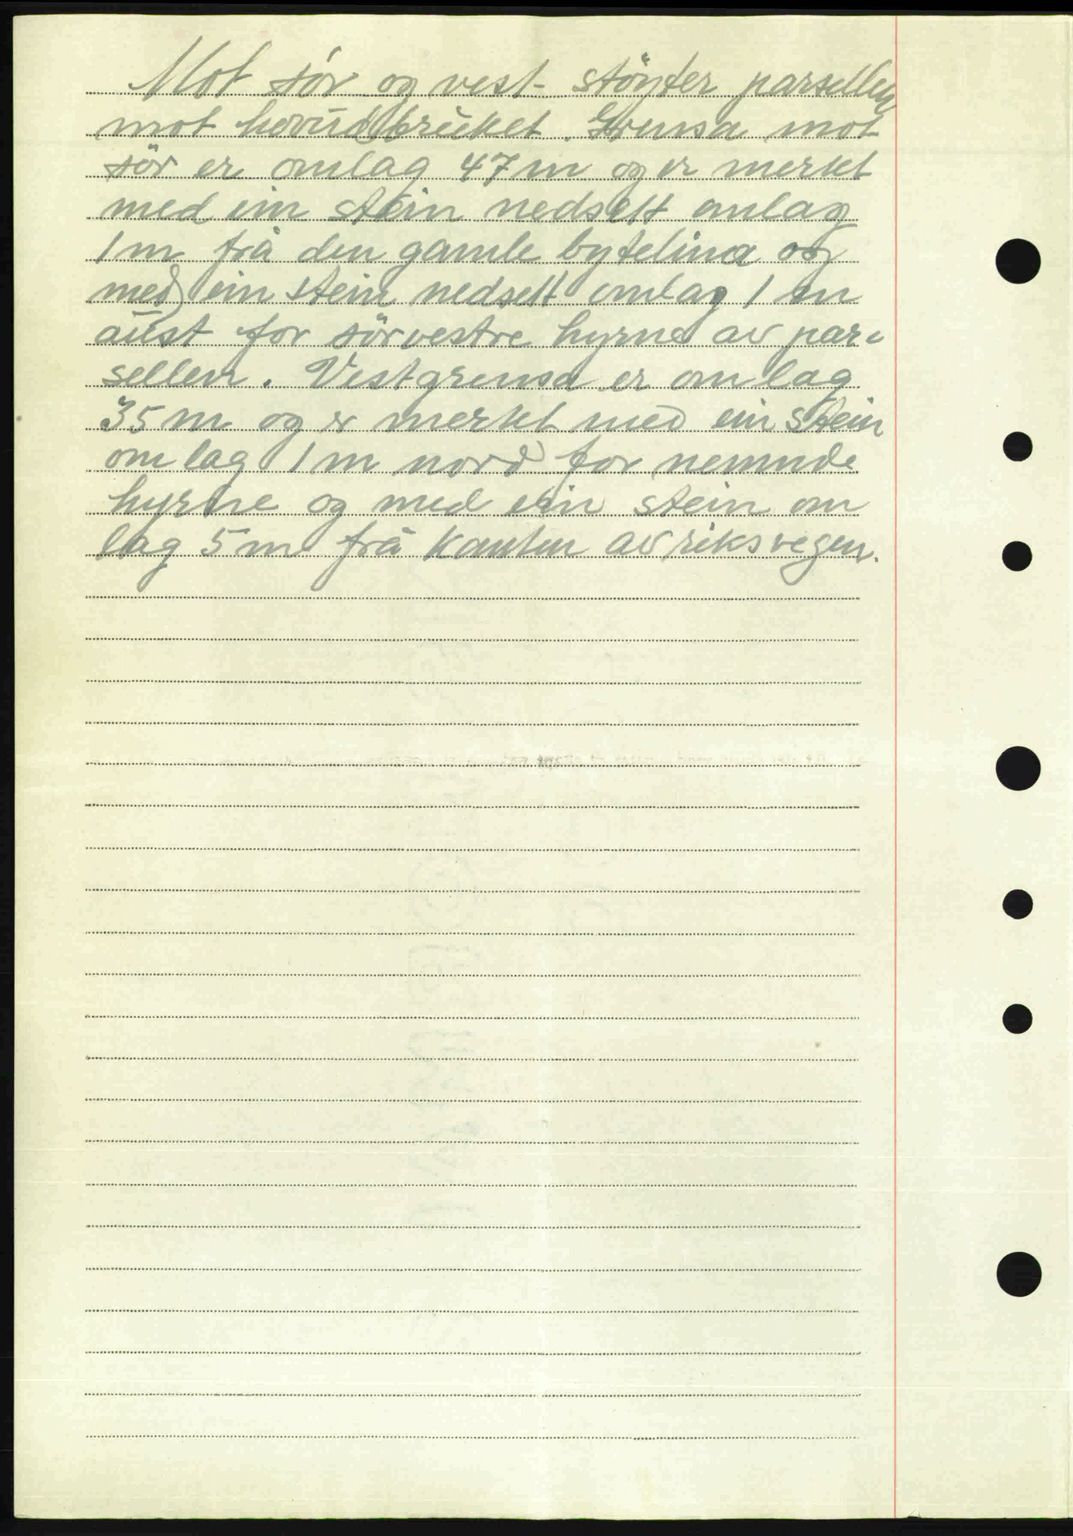 Mot sör og vest støyter parsellen
mot hovudbruket. Grensa mot
sör er omlag 47 m og er merkt
med ein stein nedsett omlag
1 m frå den gamle bytelina og
med ein stein nedsett omlag 1 m
aust for sörvestre hyrna av par-
sellen. Vestgrensa er om lag
35 m og er merkt med ein stein
om lag 1 m nord for nemnde
hyrne og med ein stein om
lag 5 m frå kanten av riksvegen.